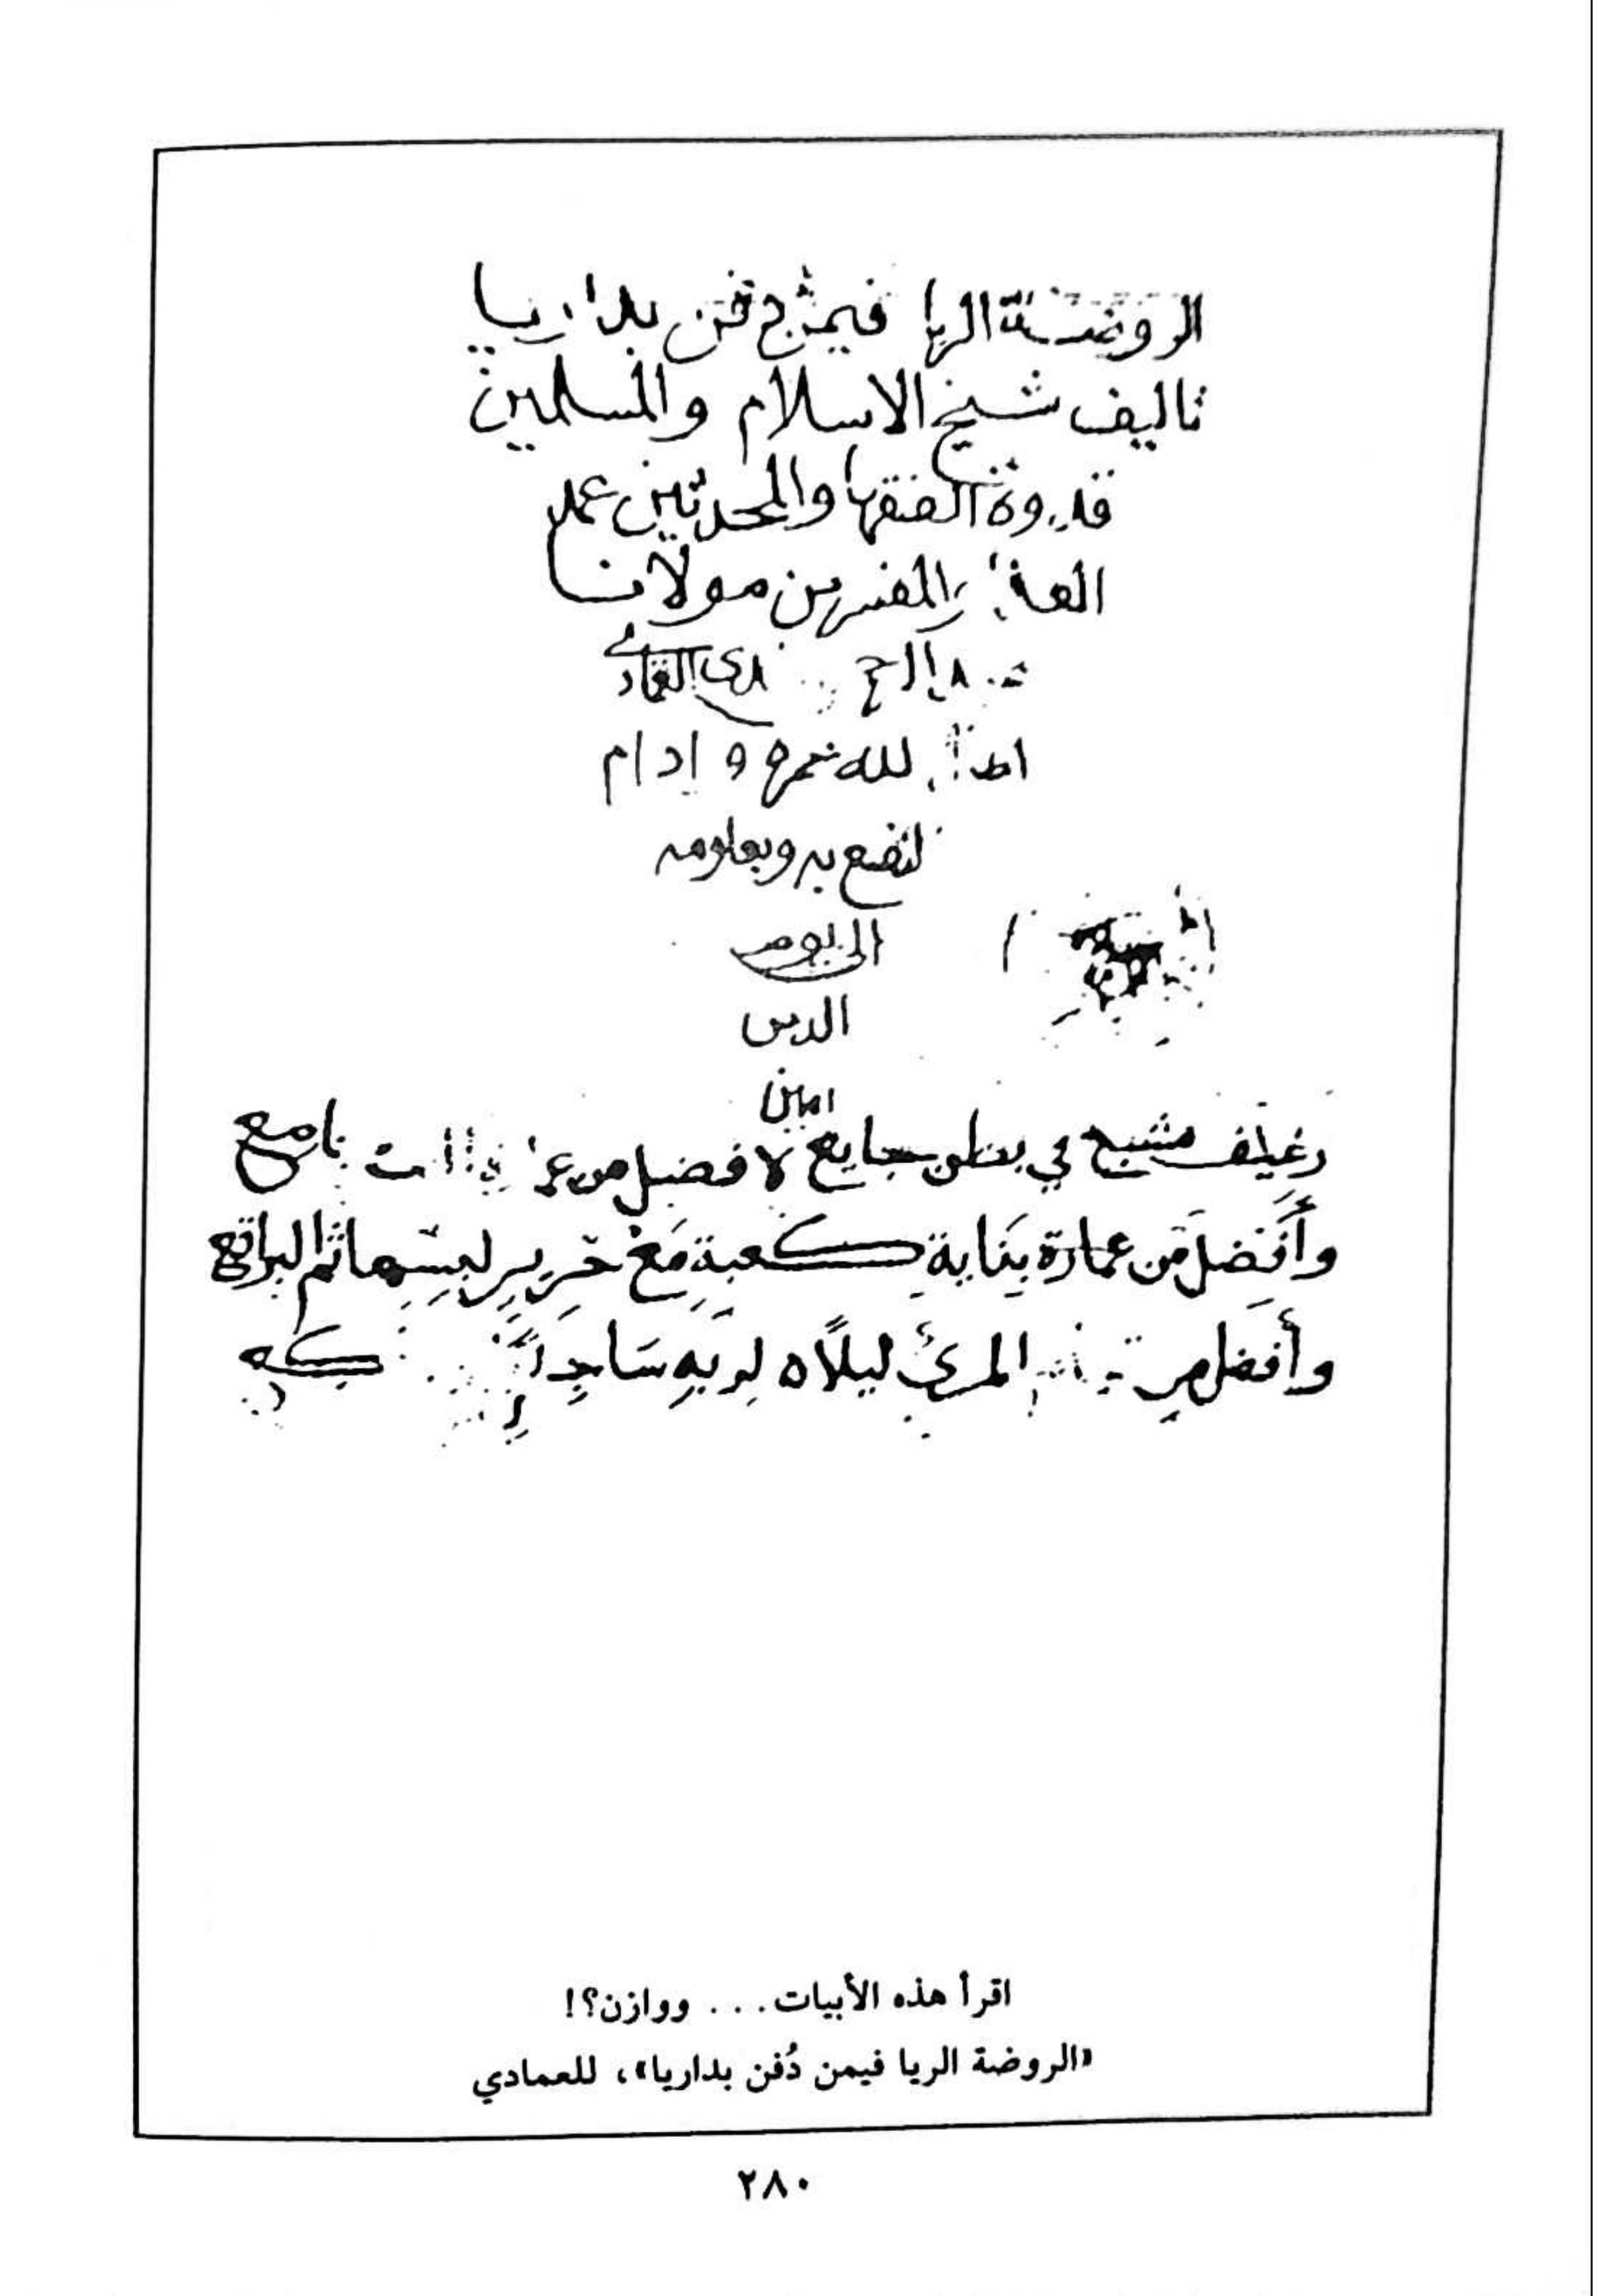 الروضة الريا فيمن دفن بداريا
تاليف شيخ الاسلام والمسلمين
قدوة الفقها والمحدثين عمدة
والمفسرين مولانا
العمادي
الله عمره وادام
لنفع به وبعلومه
الى يوم
الدين
امين
رغيف مشبع في بطن جايع لا فضل من
وأفضل من عمارة بناية كعبة مع حرير لبسها ثم البراقع
وأفضل من المرئ ليلاً لربه ساجد
اقرأ هذه الأبيات... ووازن؟!
«الروضة الريا فيمن دُفن بداريا»، للعمادي
٢٨٠